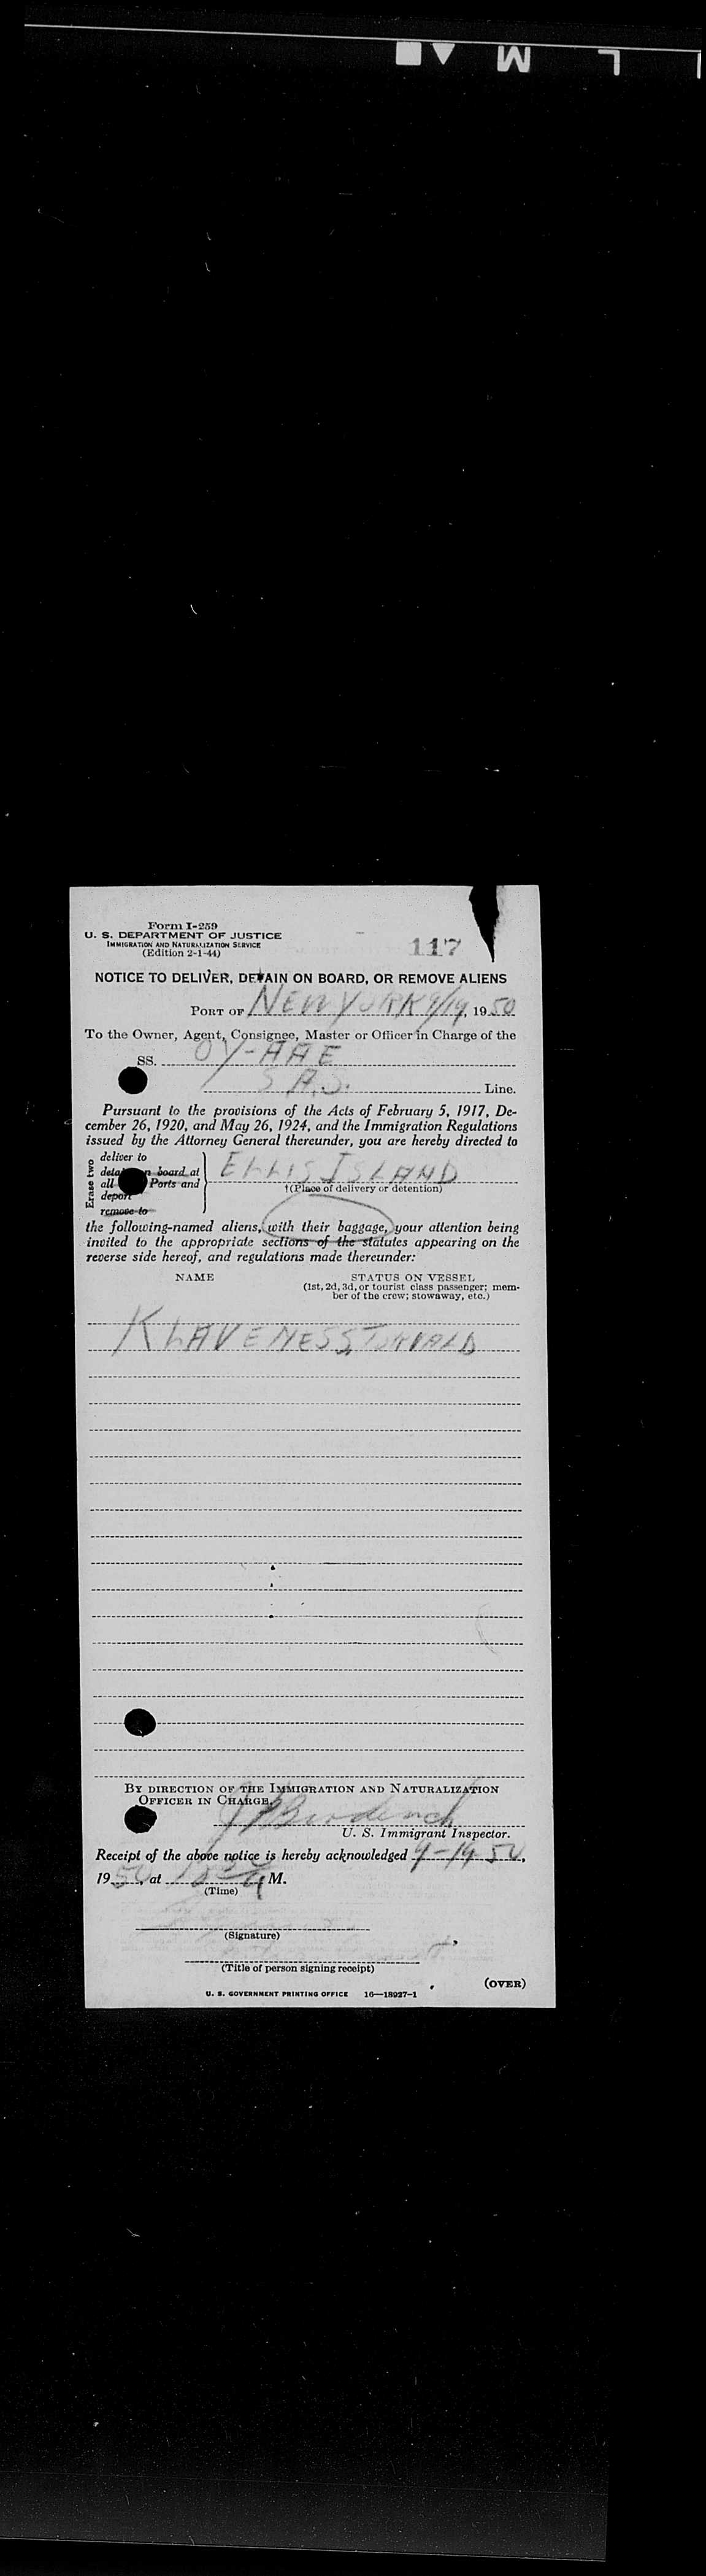 Form I-259
U. S. DEPARTMENT OF JUSTICE
IMMIGRATION AND NATURALIZATION SERVICE
(Edition 2-1-44)
117
NOTICE TO DELIVER, DETAIN ON BOARD, OR REMOVE ALIENS
PORT OF NEW YORK 9/19, 1950
To the Owner, Agent, Consignee, Master or Officer in Charge of the
SS. OY-AAE
S.A.S. Line.
Pursuant to the provisions of the Acts of February 5, 1917, De-
cember 26, 1920, and May 26, 1924, and the Immigration Regulations
issued by the Attorney General thereunder, you are hereby directed to
Erase two
deliver to
detain on board at
all Ports and
deport
remove to
ELLIS ISLAND
†(Place of delivery or detention)
the following-named aliens, with their baggage, your attention being
invited to the appropriate sections of the statutes appearing on the
reverse side hereof, and regulations made thereunder:
NAME STATUS ON VESSEL
(1st, 2d, 3d, or tourist class passenger; mem-
ber of the crew; stowaway, etc.)
KLAVENESS TORVALD
BY DIRECTION OF THE IMMIGRATION AND NATURALIZATION
OFFICER IN CHARGE.
U. S. Immigrant Inspector.
Receipt of the above notice is hereby acknowledged 9-19-50,
1950, at M.
(Time)
(Signature)
(Title of person signing receipt)
(OVER)
U. S. GOVERNMENT PRINTING OFFICE 16—18927-1